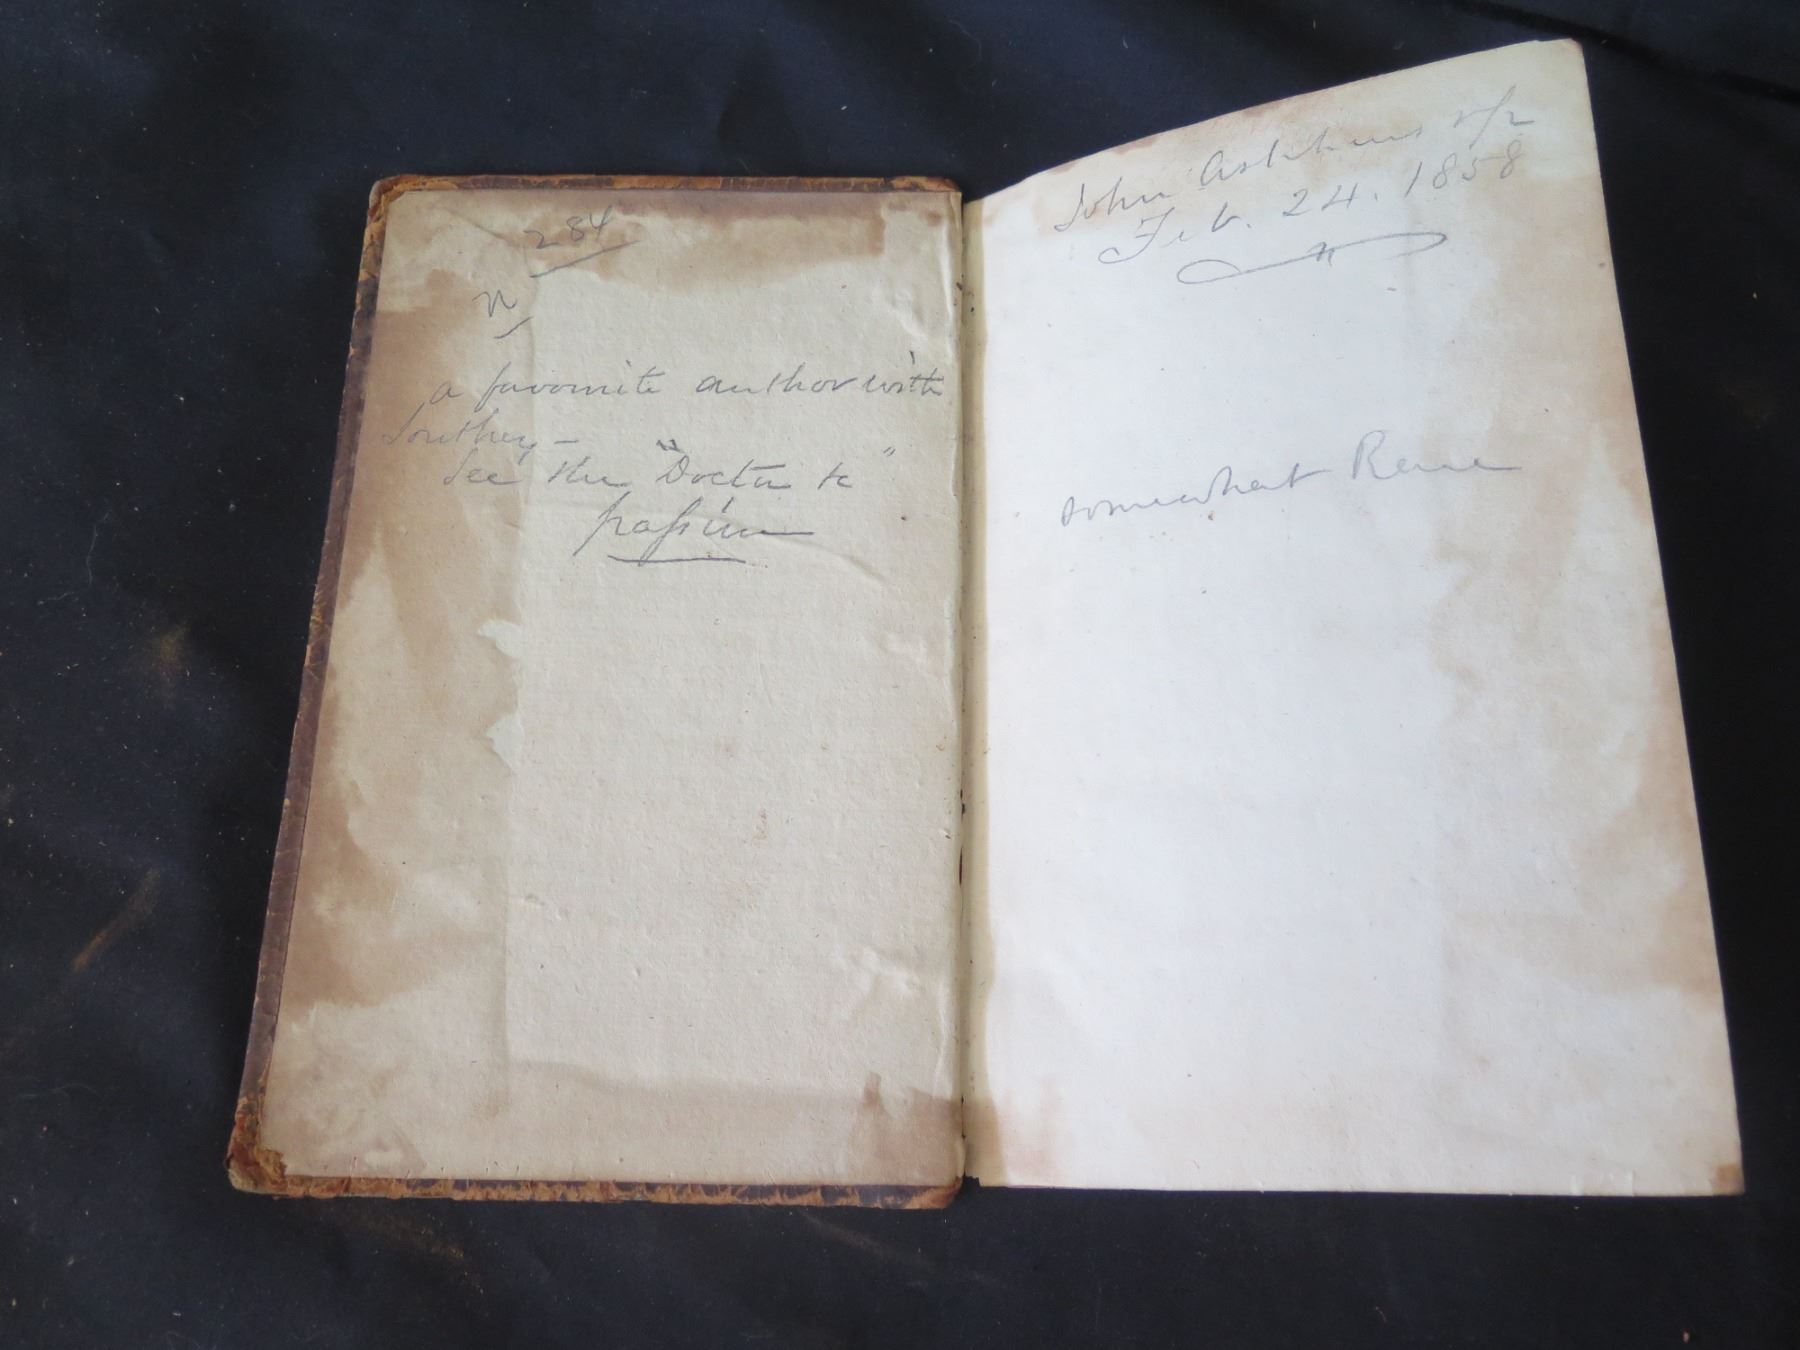 284
n
a favourite author with
Southey –
See the "Doctor &c"
passim
John
Feb. 24. 1858
somewhat Rare